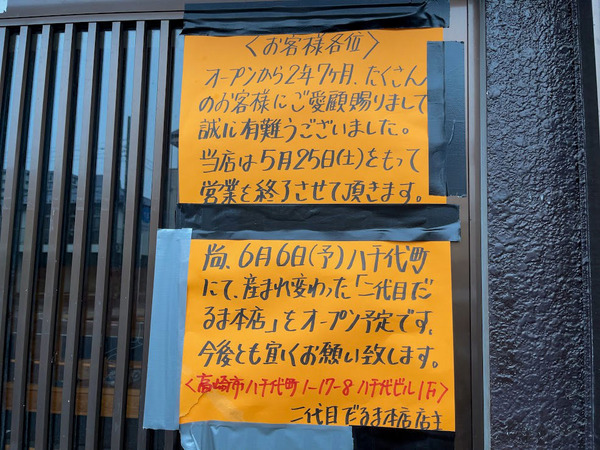 〈お客様各位〉
オープンから2年7ヶ月、たくさん
のお客様にご愛顧賜りまして
誠に有難うございました。
当店は5月25日(土)をもって
営業を終了させて頂きます。
尚、6月6日(予)八千代町
にて、産まれ変わった「二代目だ
るま本店」をオープン予定です。
今後とも宜しくお願い致します。
〈高崎市八千代町1-17-8 八千代ビル1F〉
二代目だるま本店店主